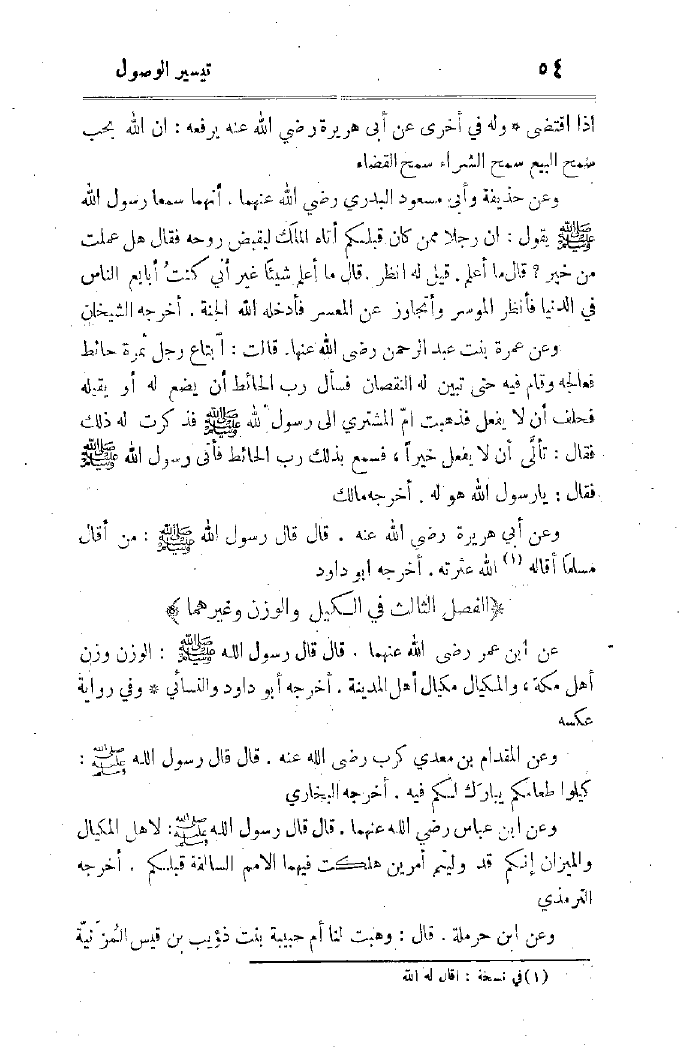 ٥٤
تيسير الوصول
اذا اقتضى * وله في أخرى عن أبى هريرة رضي الله عنه يرفعه : ان الله يحب
سمح البيع سمح الشراء سمح القضاء
وعن حذيفة وأبى مسعود البدري رضي الله عنهما . أنهما سمعا رسول الله
ﷺ يقول : ان رجلا ممن كان قبلكم أتاه الملك ليقبض روحه فقال هل عملت
من خير ? قال ما أعلم . قيل له انظر . قال ما أعلم شيئا غير أني كنتُ أبايع الناس
في الدنيا فأنظر الموسر وأتجاوز عن المعسر فأدخله الله الجنة . أخرجه الشيخان
وعن عمرة بنت عبد الرحمن رضى الله عنها. قالت : آبتاع رجل ثمرة حائط
فعالجه وقام فيه حتى تبين له النقصان فسأل رب الحائط أن يضع له أو يقيله
فحلف أن لا يفعل فذهبت امّ المشتري الى رسول الله ﷺ فذكرت له ذلك
فقال : تألَّى أن لا يفعل خيراً ، فسمع بذلك رب الحائط فأتى رسول الله ﷺ
فقال : يارسول الله هو له . أخرجه مالك
وعن أبي هريرة رضي الله عنه . قال قال رسول الله ﷺ : من أقال
مسلما أقاله (١) الله عثرته . أخرجه ابو داود
﴿الفصل الثالث في الكيل والوزن وغيرهما ﴾
عن ابن عمر رضى الله عنهما . قال قال رسول الله ﷺ : الوزن وزن
أهل مكة ، والمكيال مكيال أهل المدينة . أخرجه أبو داود والنسائي * وفي رواية
عكسه
وعن المقدام بن معدي كرب رضى الله عنه . قال قال رسول الله ﷺ :
كيلوا طعامكم يبارَك لكم فيه . أخرجه البخاري
وعن ابن عباس رضي الله عنهما . قال قال رسول الله ﷺ: لاهل المكيال
والميزان إنكم قد وليتم أمرين هلكت فيهما الامم السالفة قبلكم . أخرجه
الترمذي
وعن ابن حرملة . قال : وهبت لنا أم حبيبة بنت ذؤيب بن قيس المُزَنيّة
(١) في نسخة : اقال له الله